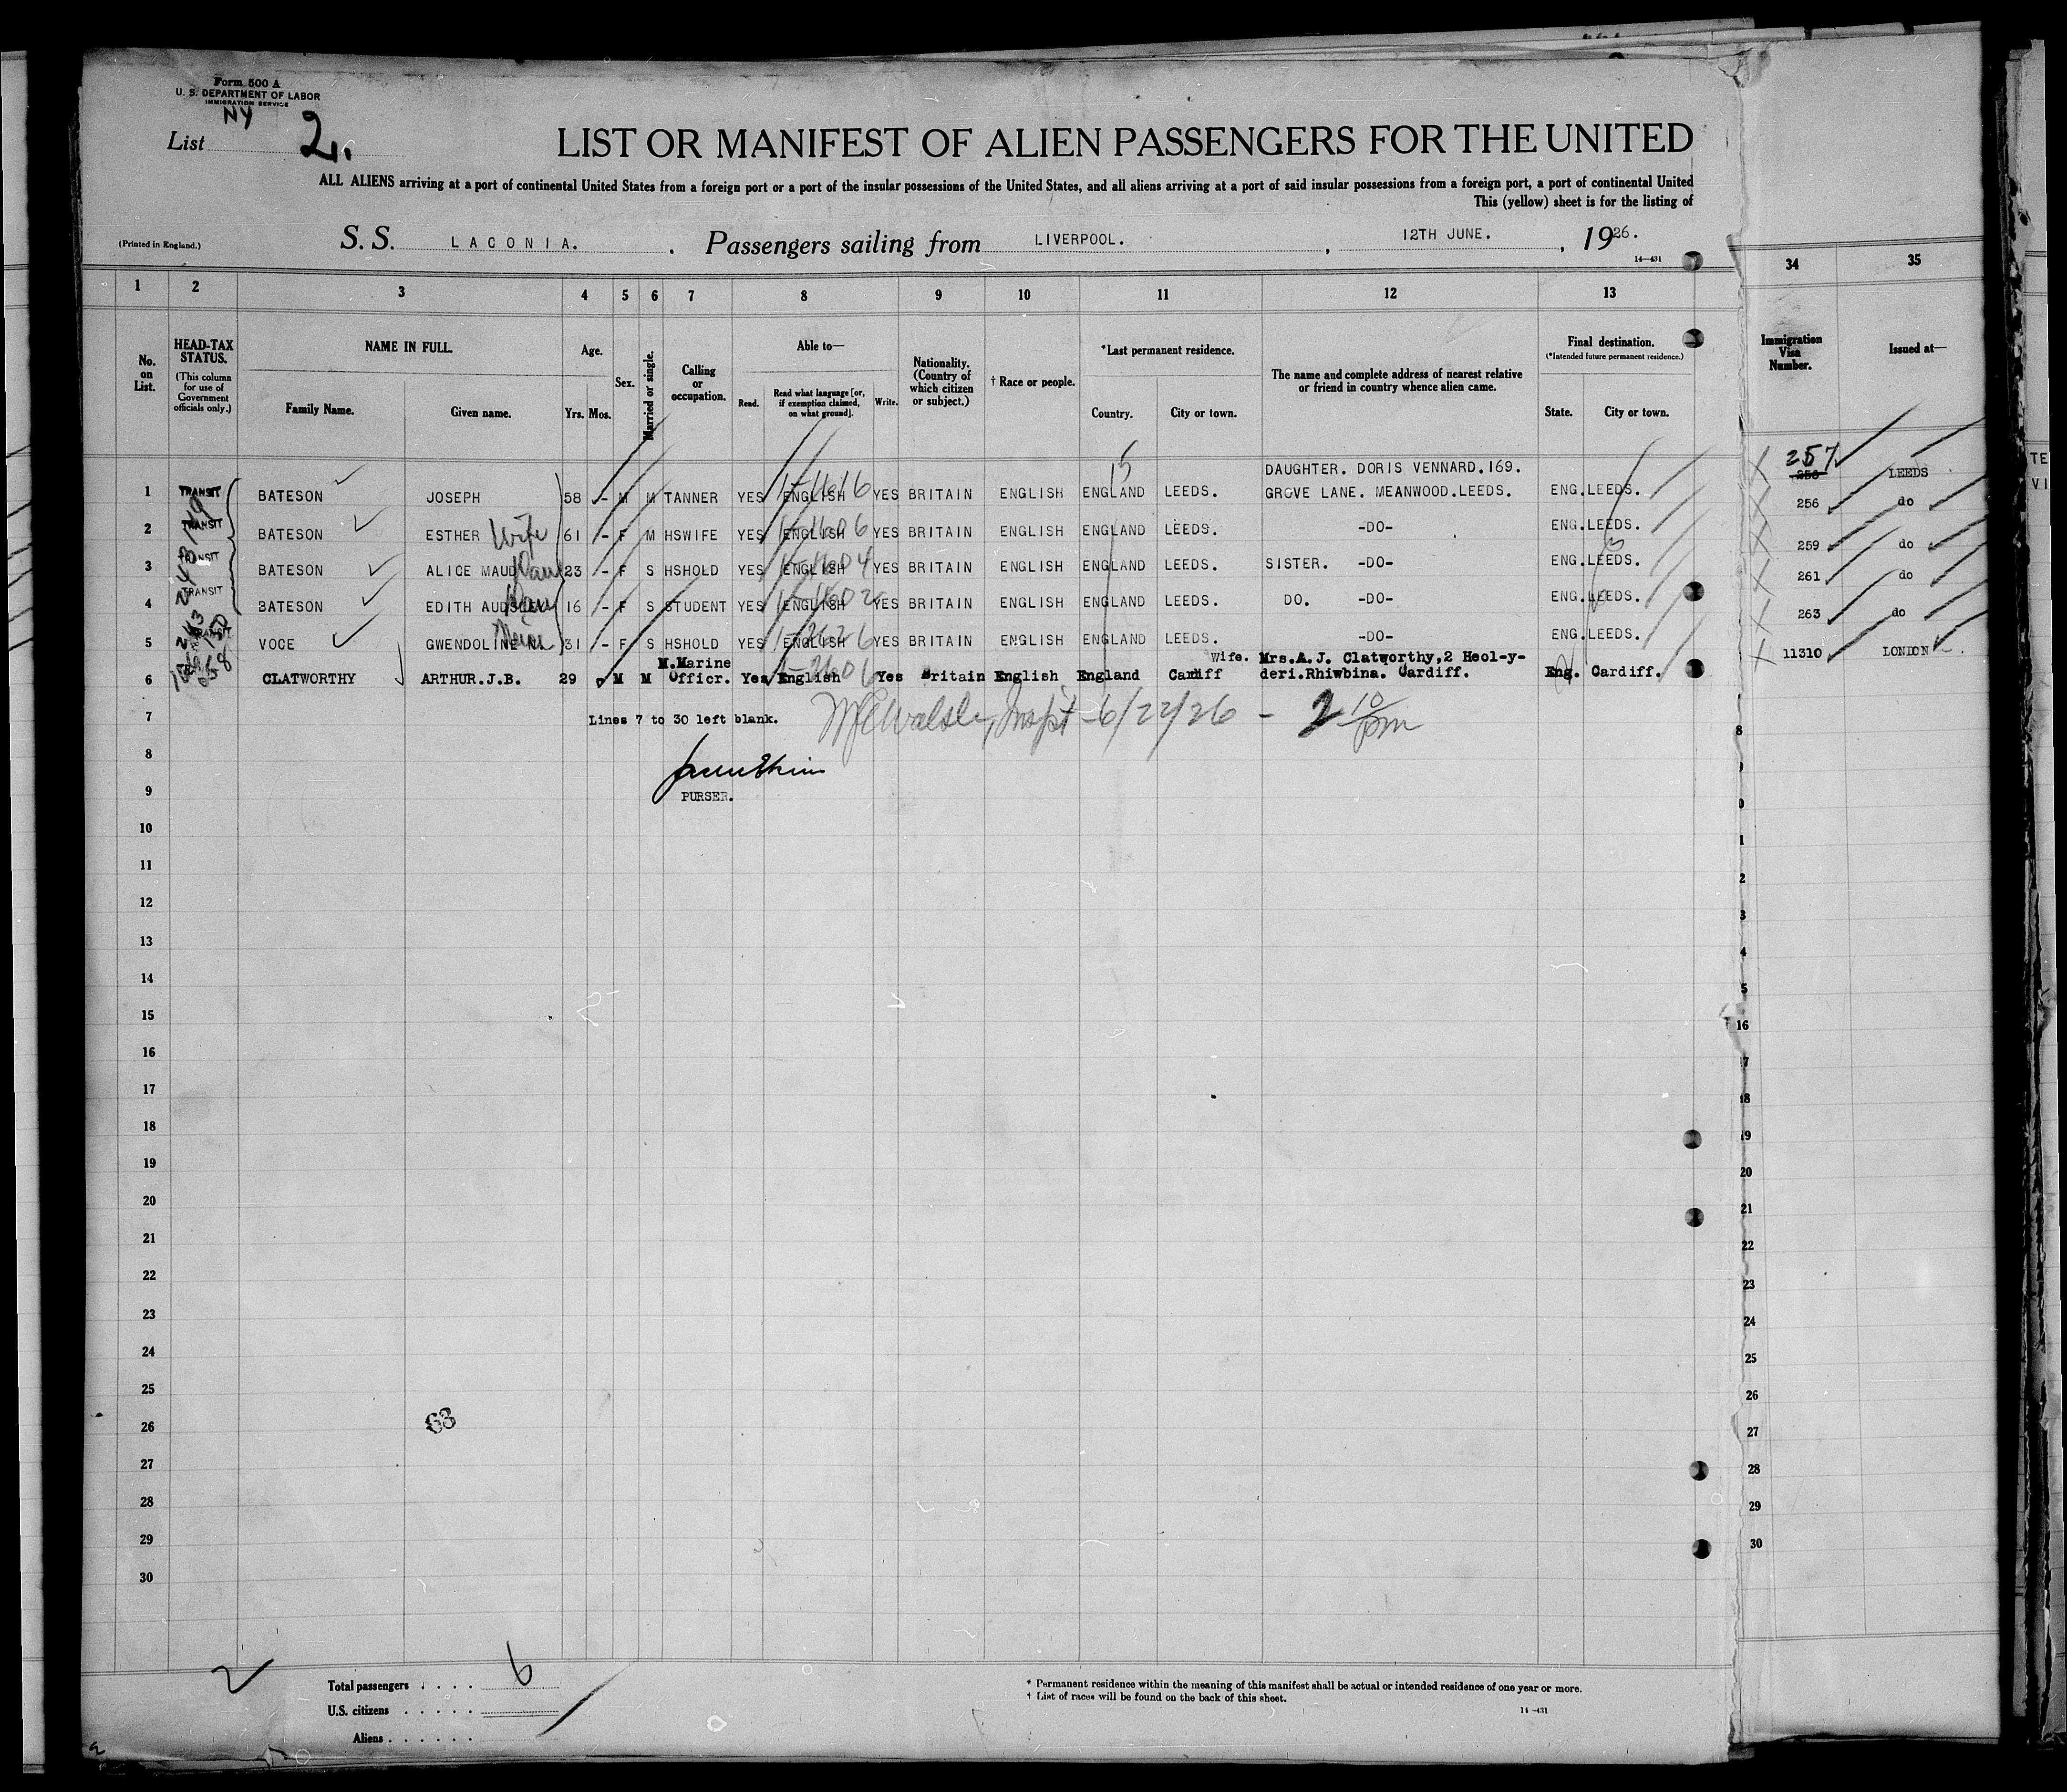 Form 500 A
U. S. DEPARTMENT OF LABOR
IMMIGRATION SERVICE
NY
List 2.
LIST OR MANIFEST OF ALIEN PASSENGERS FOR THE UNITED
ALL ALIENS arriving at a port of continental United States from a foreign port or a port of the insular possessions of the United States, and all aliens arriving at a port of said insular possessions from a foreign port, a port of continental United
This (yellow) sheet is for the listing of
(Printed in England.) S. S. LACONIA. , Passengers sailing from LIVERPOOL. , 12TH JUNE. , 1926.
14—431
1 2 3 4 5 6 7 8 9 10 11 12 13 34 35
No. on List.
HEAD-TAX STATUS.
(This column for use of Government officials only.)
NAME IN FULL.
Family Name. Given name.
Age.
Yrs. Mos.
Sex.
Married or single.
Calling or occupation.
Able to—
Read. Read what language [or, if exemption claimed, on what ground]. Write.
Nationality. (Country of which citizen or subject.)
† Race or people.
*Last permanent residence.
Country. City or town.
The name and complete address of nearest relative or friend in country whence alien came.
Final destination.
(*Intended future permanent residence.)
State. City or town.
Immigration Visa Number.
Issued at—
DAUGHTER. DORIS VENNARD.169. 257
1 TRANSIT BATESON JOSEPH 58 - M M TANNER YES ENGLISH YES BRITAIN ENGLISH ENGLAND LEEDS. GROVE LANE. MEANWOOD.LEEDS. ENG. LEEDS. LEEDS
2 TRANSIT BATESON ESTHER Wife 61 - F M HSWIFE YES ENGLISH YES BRITAIN ENGLISH ENGLAND LEEDS. -DO- ENG. LEEDS. 256 do
3 TRANSIT BATESON ALICE MAUD Dau 23 - F S HSHOLD YES ENGLISH YES BRITAIN ENGLISH ENGLAND LEEDS. SISTER. -DO- ENG. LEEDS. 259 do
4 TRANSIT BATESON EDITH AUDSLEY Dau 16 - F S STUDENT YES ENGLISH YES BRITAIN ENGLISH ENGLAND LEEDS. DO. -DO- ENG. LEEDS. 261 do
5 TRANSIT VOCE GWENDOLINE N. 31 - F S HSHOLD YES ENGLISH YES BRITAIN ENGLISH ENGLAND LEEDS. -DO- ENG. LEEDS. 263 do
M.Marine Wife. Mrs.A.J. Clatworthy,2 Heol-y-
6 CLATWORTHY ARTHUR.J.B. 29 M M Officr. Yes English Yes Britain English England Cardiff deri.Rhiwbina. Cardiff. Eng. Cardiff. 11310 LONDON
7 Lines 7 to 30 left blank. Inspt - 6/22/26 - 2 10/pm
8
9 PURSER.
10
11
12
13
14
15
16
17
18
19
20
21
22
23
24
25
26
63
27
28
29
30
8
9
0
1
2
3
4
5
16
17
18
19
20
21
22
23
24
25
26
27
28
29
30
2
Total passengers . . . . 6
U.S. citizens . . . . .
Aliens . . . . . .
* Permanent residence within the meaning of this manifest shall be actual or intended residence of one year or more.
† List of races will be found on the back of this sheet.
14—431